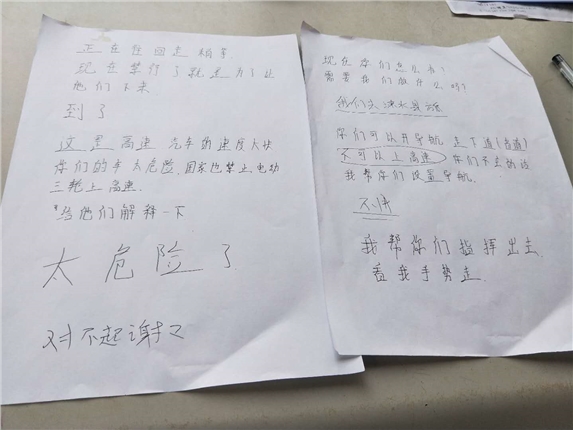 正在往回走 稍等
现在禁行了就是为了让
他们下来
到了
这是高速 汽车的速度太快
你们的车太危险,国家也禁止电动
三轮上高速.
*给他们解释一下
太危险了
对不起谢
现在你们怎么办?
需要我们做什么吗?
我们去涞水县城
你们可以开导航 走下道
不可以上高速 你们不会的话
我帮你们设置导航.
我帮你们指挥出去.
看我手势走.